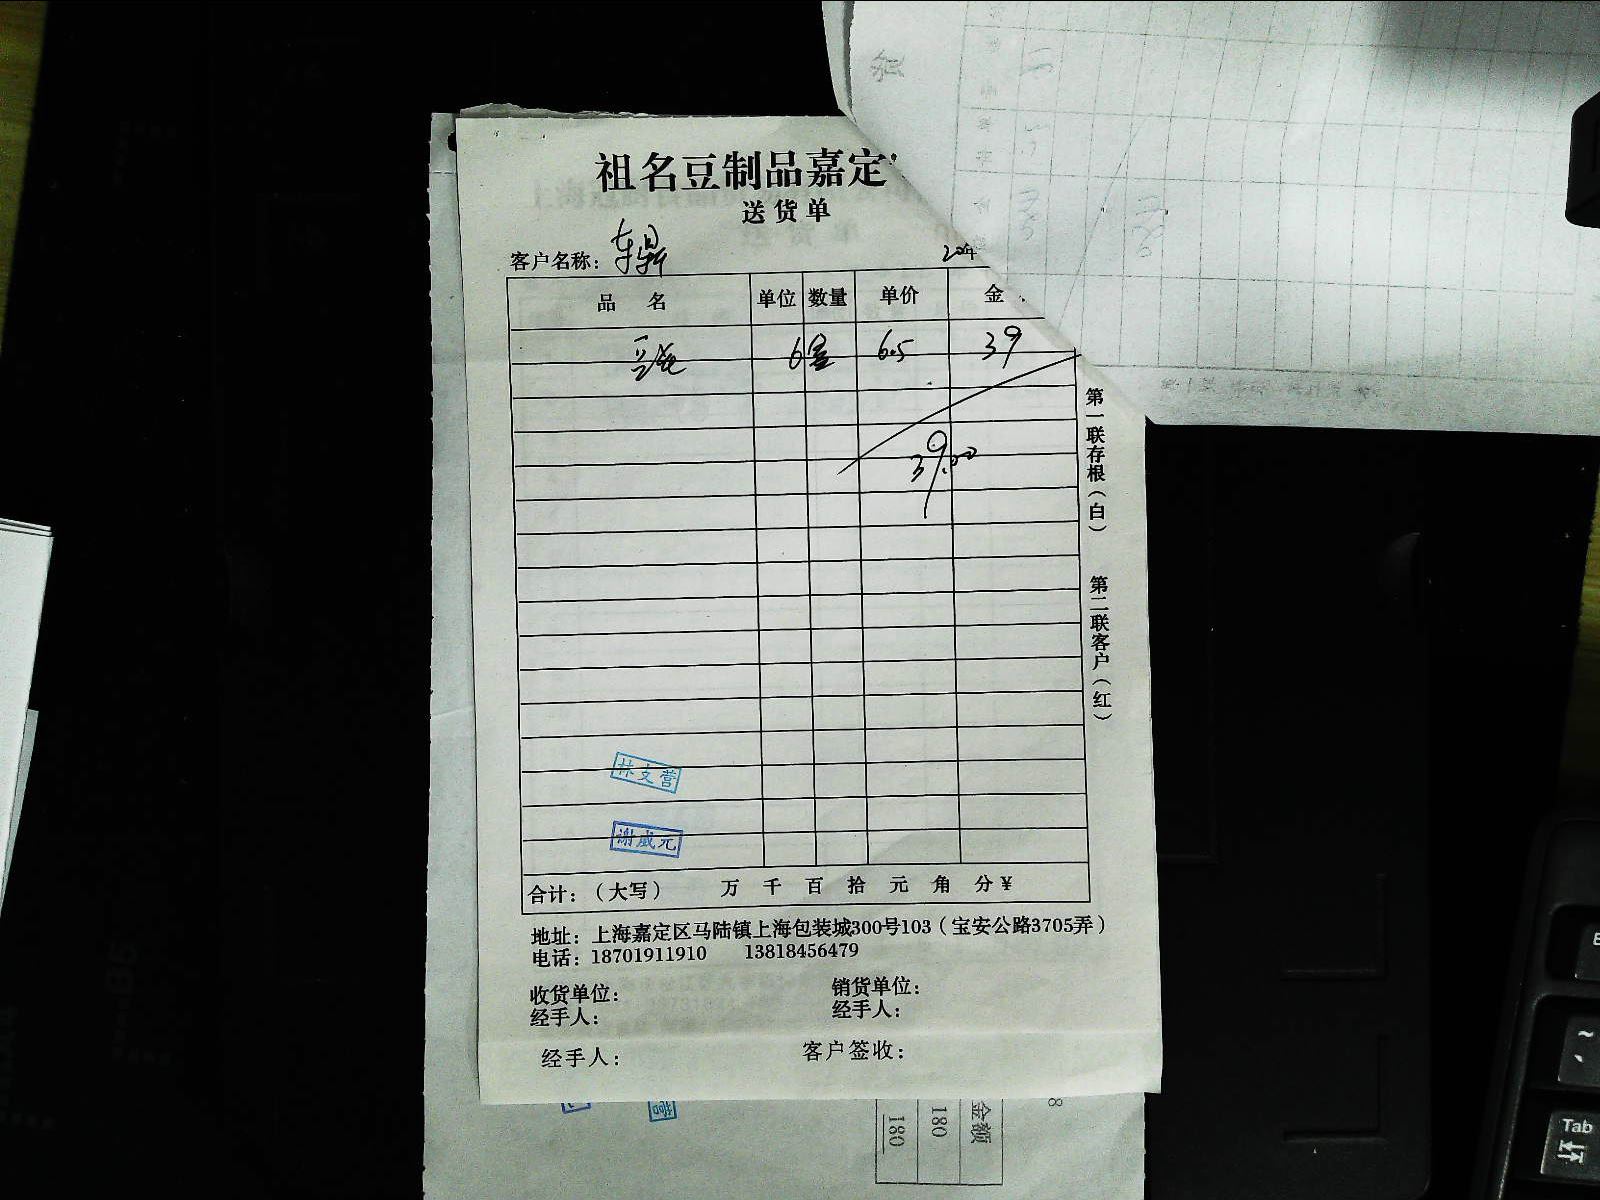 祖名豆制品嘉定
送货单
客户名称：车鼎
品 名 单位 数量 单价 金
6 盒 6.5 39
39.00
第一联存根（白） 第二联客户（红）
林文营
谢成元
合计：（大写） 万 千 百 拾 元 角 分￥
地址：上海嘉定区马陆镇上海包装城300号103（宝安公路3705弄）
电话：18701911910 13818456479
收货单位： 销货单位：
经手人： 经手人：
经手人： 客户签收：
营
金额
180
180
8
Tab